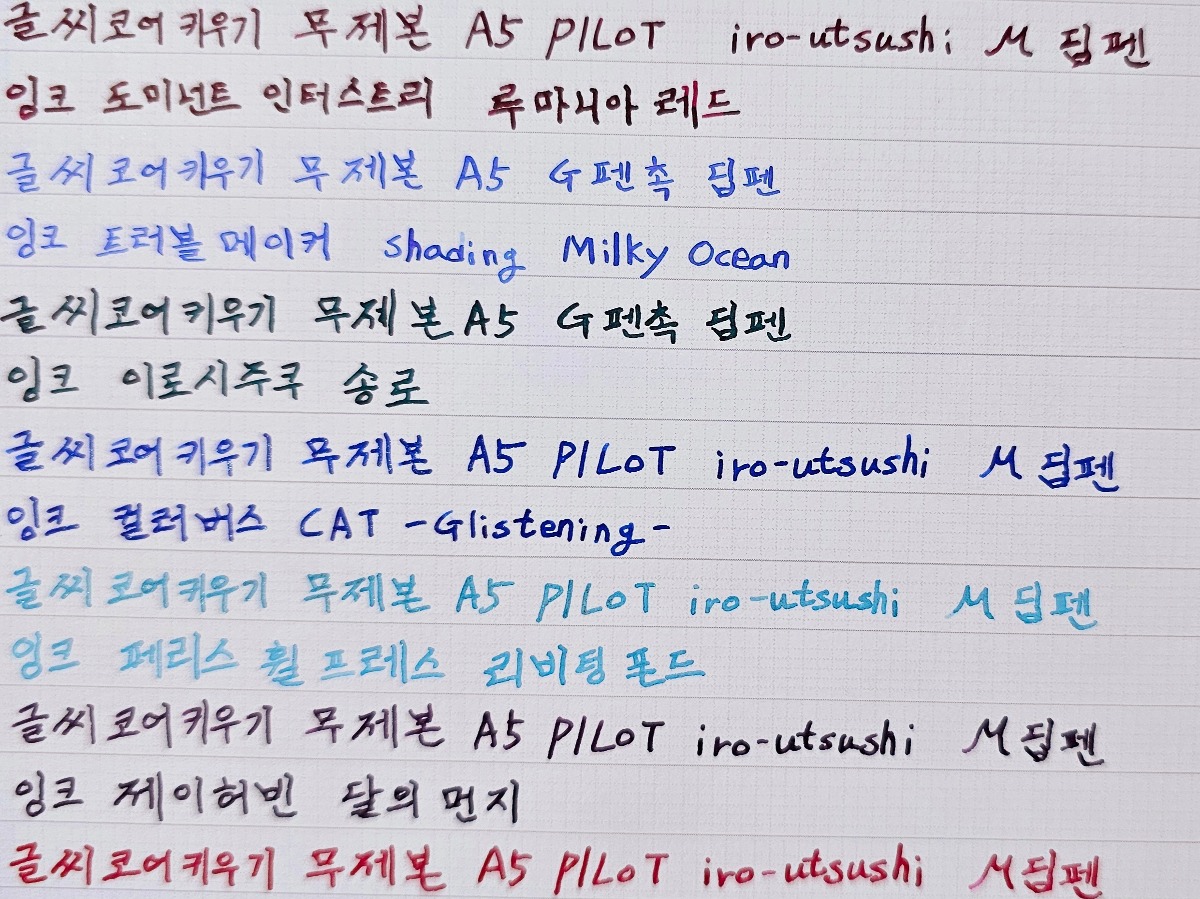 글씨코어키우기 무제본 A5 PILOT iro-utsushi M 딥펜
잉크 도미넌트 인더스트리 루마니아 레드
글씨코어키우기 무제본 A5 G펜촉 딥펜
잉크 트러블메이커 shading Milky Ocean
글씨코어키우기 무제본 A5 G펜촉 딥펜
잉크 이로시주쿠 송로
글씨코어키우기 무제본 A5 PILOT iro-utsushi M 딥펜
잉크 컬러버스 CAT -Glistening-
글씨코어키우기 무제본 A5 PILOT iro-utsushi M 딥펜
잉크 페리스 휠 프레스 리비팅 폰드
글씨코어키우기 무제본 A5 PILOT iro-utsushi M 딥펜
잉크 제이허빈 달의 먼지
글씨코어키우기 무제본 A5 PILOT iro-utsushi M 딥펜